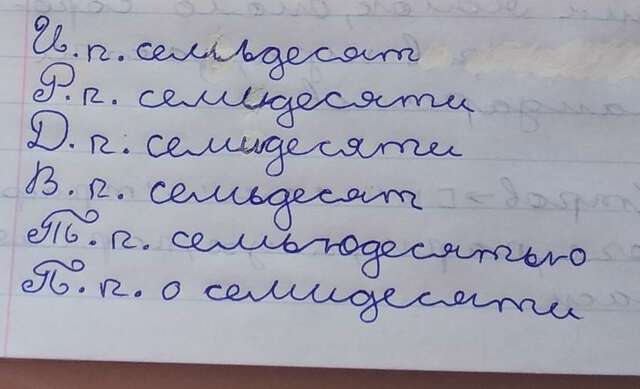 И. п. семьдесят
Р. п. семидесяти
Д. п. семидесяти
В. п. семьдесят
Тв. п. семьюдесятью
П. п. о семидесяти